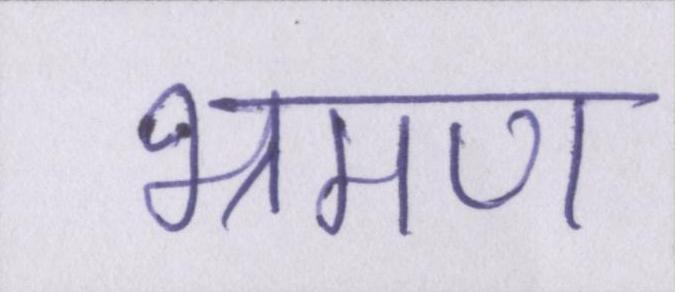 भ्रमण